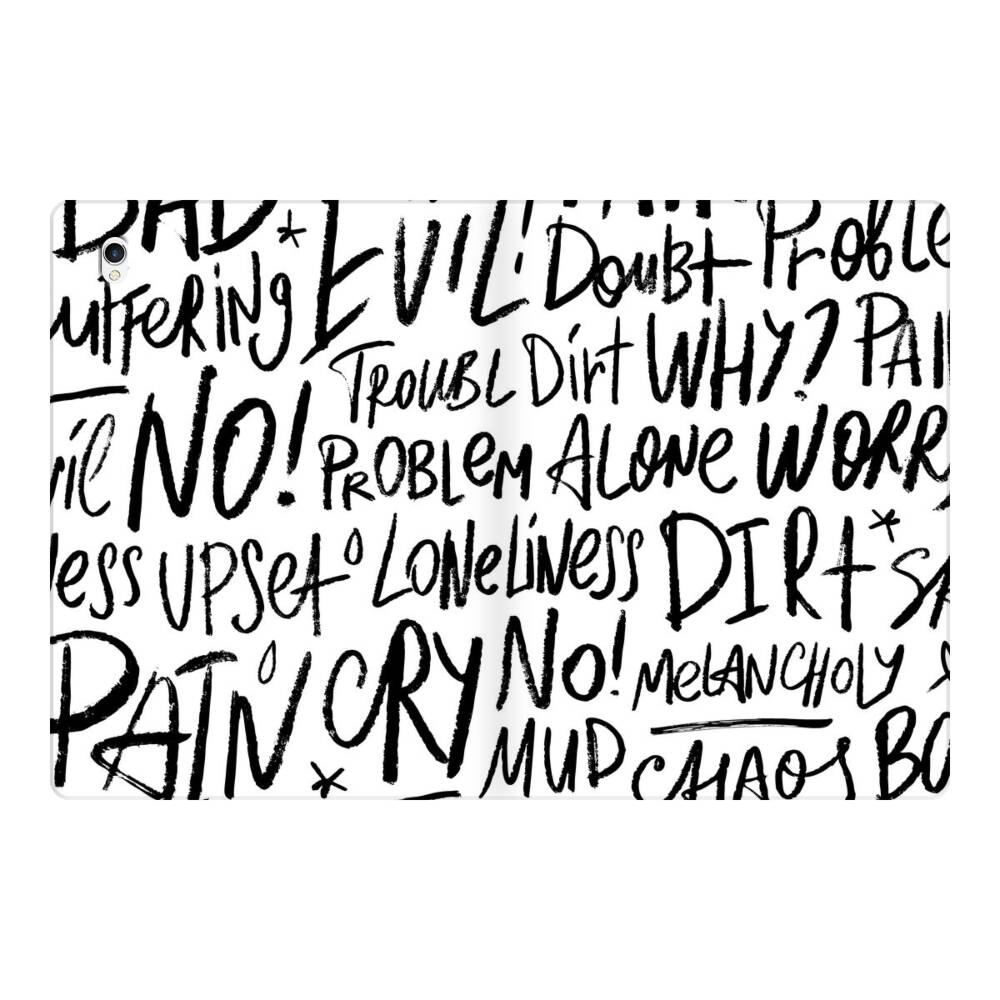 BAD * EVIL!
Suffering Doubt Proble
TROUBL Dirt WHY? PAI
vil NO! PROBLEM ALONE WORR
ess UPSet LONELINESS DIRt * SA
PAIN CRY NO! MELANCHOLY
* MUD CHAOS BO